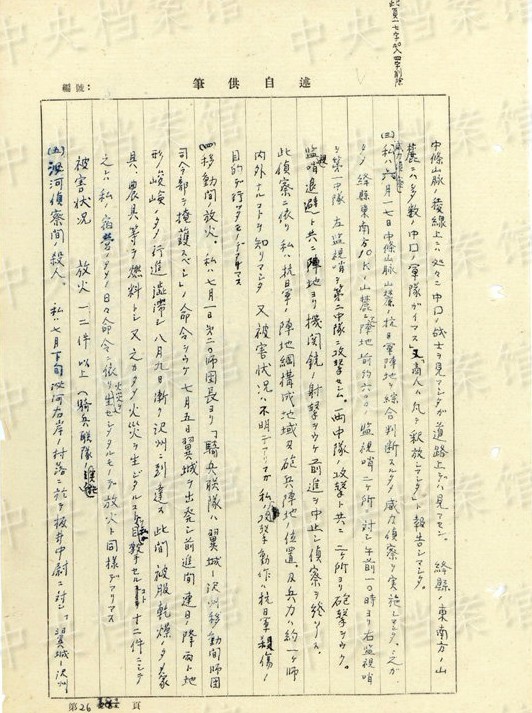 述自供筆
編號：
中條山脈ノ稜線上ニハ処々ニ中国ノ戦士ヲ見マシタガ道路上デハ見マセン 絳県ノ東南方ノ山
麓ニハ多数ノ中国ノ軍隊ガイマス 又、商人ハ凡テ釈放シマシタト報告シマシタ。
(三)私ハ六月一七日中條山脈山麓ノ抗日軍陣地ノ綜合判断スルタメ威力偵察ヲ実施シマシタ。之ガ
タメ 絳県東南方10K、山麓陣地前約六〇〇、監視哨二ケ所ニ対シ午前一〇時ヨリ右監視哨
ヲ第一中隊、左監視哨ヲ第二中隊ニ攻撃セシム。両中隊ノ攻撃ト共ニ二ケ所ヨリ砲撃ヲウケ。
監哨退避ト共ニ陣地ヨリ機関銃ノ射撃ヲウケ前進ヲ中止シ偵察ヲ終リマス。
此偵察ニ依リ私ハ抗日軍ノ陣地網構成地域及砲兵陣地ノ位置。及兵力ハ約一ケ師
内外ナルコトヲ知リマシタ 又被害状況ハ不明デアリマスガ私ノ攻撃動作ハ抗日軍殺傷ノ
目的デ行ツタモノデアリマス
(四)移動間放火。私ハ七月一日第
師団長ヨリ「騎兵聯隊ハ翼城ー沢州移動間師団
司令部ヲ掩護スベシ」ノ命令ヲウケ七月五日翼城ヲ出発シ前進間連日ノ降雨ト地
形ノ峻嶮ノタメ行進渋滞シ八月九日漸ク沢州ニ到達ス 此間被服乾燥ノタメ家
具、農具等ヲ燃料トシ又之ガタメ火災ヲ生ジタルヲ目撃セルコト十二件ニシテ
之ハ私ノ宿営ノタメノ日々命令ニ依リ火災ヲ出セシメタルモノデ放火ト同様デアリマス
被害状況 放火 一二件以上（騎兵聯隊）
(五)沁河偵察間ノ殺人。私ハ七月下旬沁河右岸ノ村落ニ於テ板井中尉ニ対シ「翼城ー沢州
第26頁